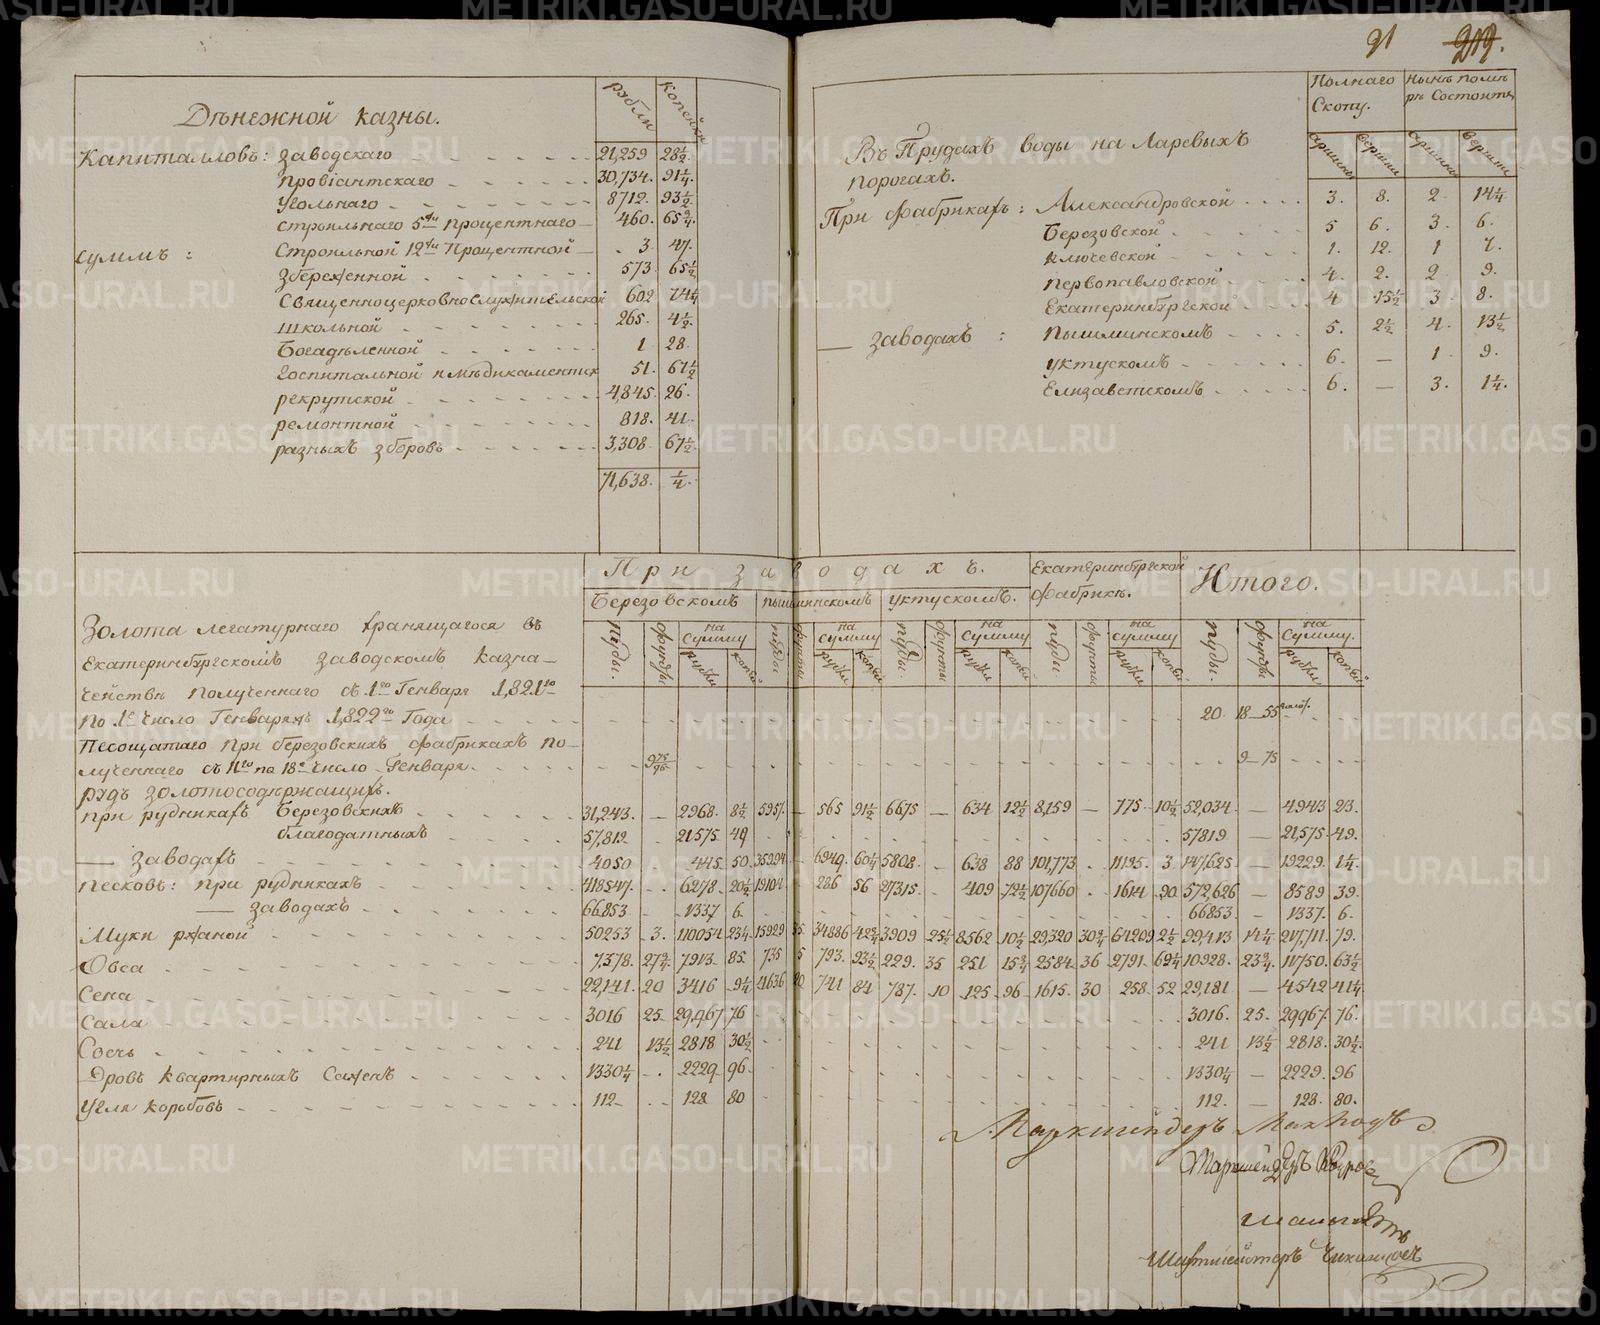 91 219.
Дѣнежной казны. рубли копейки
Капиталловъ: заводскаго 21,259 28½.
провіантскаго 30,734. 91¼.
угольнаго 8712. 93½
строильнаго 5ти процентнаго 460. 65¾.
суммъ: Строильной 12ти Процентной 3. 47.
збереженной 573. 65½
Священноцерковнослужительской 602 74¼
школьной 265. 4½.
Богадѣленной 1 28.
госпитальной и мѣдикаментск 51. 67½
рекрутской 4,845. 26.
ремонтной 818. 41.
разныхъ зборовъ 3,308. 67½.
71,638. ¼.
Полнаго Скопу. Нынѣ помѣрѣ Состоитъ
аршины вершки аршины вершки
Въ Прудахъ воды на Ларевыхъ
порогахъ.
При фабрикахъ: Александровской 3. 8. 2. 14¼
Березовской 5 6. 3. 6.
Ключевской 1. 12. 1 7.
Первопавловской 4. 2. 2 9.
Екатеринбургской 4 15½ 3. 8.
— заводахъ: Пышминскомъ 5. 2½ 4. 13½
Уктускомъ 6. — 1. 9.
Елизаветскомъ 6. — 3. 1¼.
При заводахъ. Екатеринбургской фабрикѣ. Итого.
Березовскомъ Пышминскомъ Уктускомъ.
пуды. фунты на сумму рубли копей пуды фунты на сумму рубли копей пуды. фунты на сумму рубли копей пуды фунты на сумму рубли копей пуды. фунты на сумму. рубли копей
Золота легатурнаго хранящагося въ
Екатеринбургскомъ заводскомъ казна-
чействѣ полученнаго съ 1го Генваря 1,821го
по 1е число Генваряжъ 1,822го Года 20. 18 — 55
Песощатаго при березовскихъ фабрикахъ по-
лученнаго съ 11го по 18е число Генваря 9 75/96 9 — 75
рудъ золотосодержащихъ.
при рудникахъ Березовскихъ 31,243. — 2968. 8½ 5957. — 565 91½ 6675 — 634 12½ 8,159 — 775 10½ 52,034. — 4943 23.
благодатныхъ 57,819 21575 49 57819 — 21,575 49.
— заводахъ 4050 445 50 35994 — 6949. 60¼ 5808. — 638 88 101,773 11195 3 147625 — 19229. 1¼.
Песковъ: при рудникахъ 418547. 6278 20½ 19104 286 56 27315. 409 72½ 107660 1614 90 572,626 — 8589 39.
— заводахъ 66853 1337 6 66853. — 1337. 6.
Муки ржаной 50253 3. 110054 23¼ 15929 35 34886 42¾ 3909 25¼ 8562 10½ 29,320 30¾ 64209 2½ 99,413 14¼ 217,711. 79.
Овса 7,378. 27¾ 7913. 85. 735 5 793. 93½ 229. 35 251 15¾ 2584 36 2791 69¼ 10928. 23¾. 11750. 63½
Сена 22,141. 20 3416 9¼ 4636 20 741 84 787. 10 125 96 1615. 30 258. 52 29,181 — 4542 41¼
Сала 3016 25 29,967 76 3016. 25. 29967. 76.
Соечь 241 13½ 2818 30½ 241 13½ 2818. 30½.
Дровъ квартирныхъ Сажень 1330¼ 2229 96 1330¼ — 2229. 96
Угля коробовъ 112 128 80 112. — 128. 80.
Маркшейдеръ
Маркшейдеръ
Шихтмейстеръ